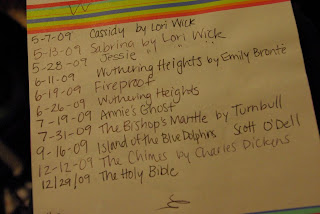 5-7-09 Cassidy by Lori Wick
5-13-09 Sabrina by Lori Wick
5-28-09 Jessie " " "
6-11-09 Wuthering Heights by Emily Brontë
6-19-09 Fireproof
6-26-09 Wuthering Heights
7-19-09 Annie's Ghost
7-31-09 The Bishop's Mantle by Turnbull
9-16-09 Island of the Blue Dolphins : Scott O'Dell
12-12-09 The Chimes by Charles Dickens
12/29/09 The Holy Bible